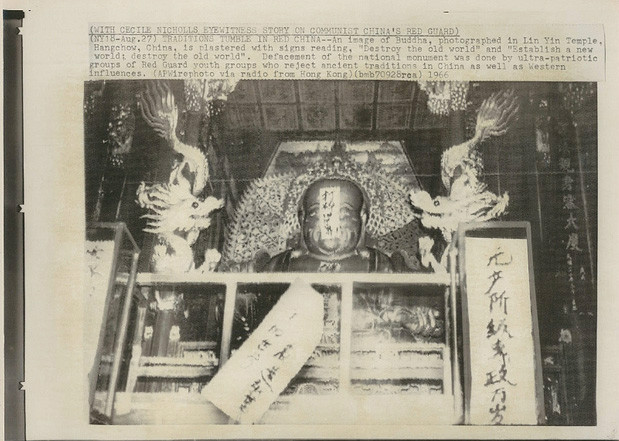 (WITH CECILE NICHOLLS EYEWITNESS STORY ON COMMUNIST CHINA'S RED GUARD)
(NY18-Aug.27) TRADITIONS TUMBLE IN RED CHINA--An image of Buddha, photographed in Lin Yin Temple,
Hangchow, China, is plastered with signs reading, "Destroy the old world" and "Establish a new
world; destroy the old world". Defacement of the national monument was done by ultra-patriotic
groups of Red Guard youth groups who reject ancient traditions in China as well as Western
influences. (APWirephoto via radio from Hong Kong)(bmb70928rca) 1966
无产阶级专政万岁